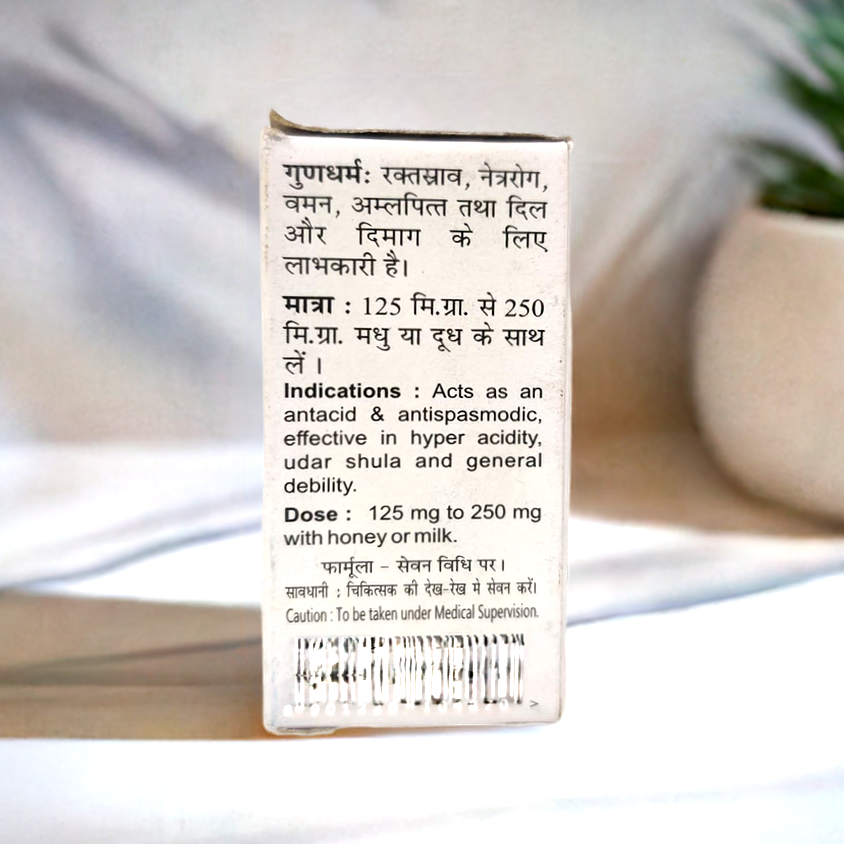 गुणधर्म: रक्तस्राव, नेत्ररोग,
वमन, अम्लपित्त तथा दिल
और दिमाग के लिए
लाभकारी है।
मात्रा : 125 मि.ग्रा. से 250
मि.ग्रा. मधु या दूध के साथ
लें ।
Indications : Acts as an
antacid & antispasmodic,
effective in hyper acidity,
udar shula and general
debility.
Dose : 125 mg to 250 mg
with honey or milk.
फार्मूला – सेवन विधि पर।
सावधानी : चिकित्सक की देख-रेख मे सेवन करें।
Caution : To be taken under Medical Supervision.
>